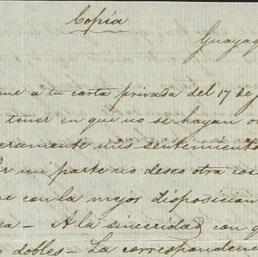 Copia
Guayaq
me a tu carta privada del 17 de j
tener en que no se hayan o
eramente mis sentimiento
r mi parte no deseo otra cos
e con la mejor disposicion
ea - A la sinceridad con q
s dobles - La correspondenc